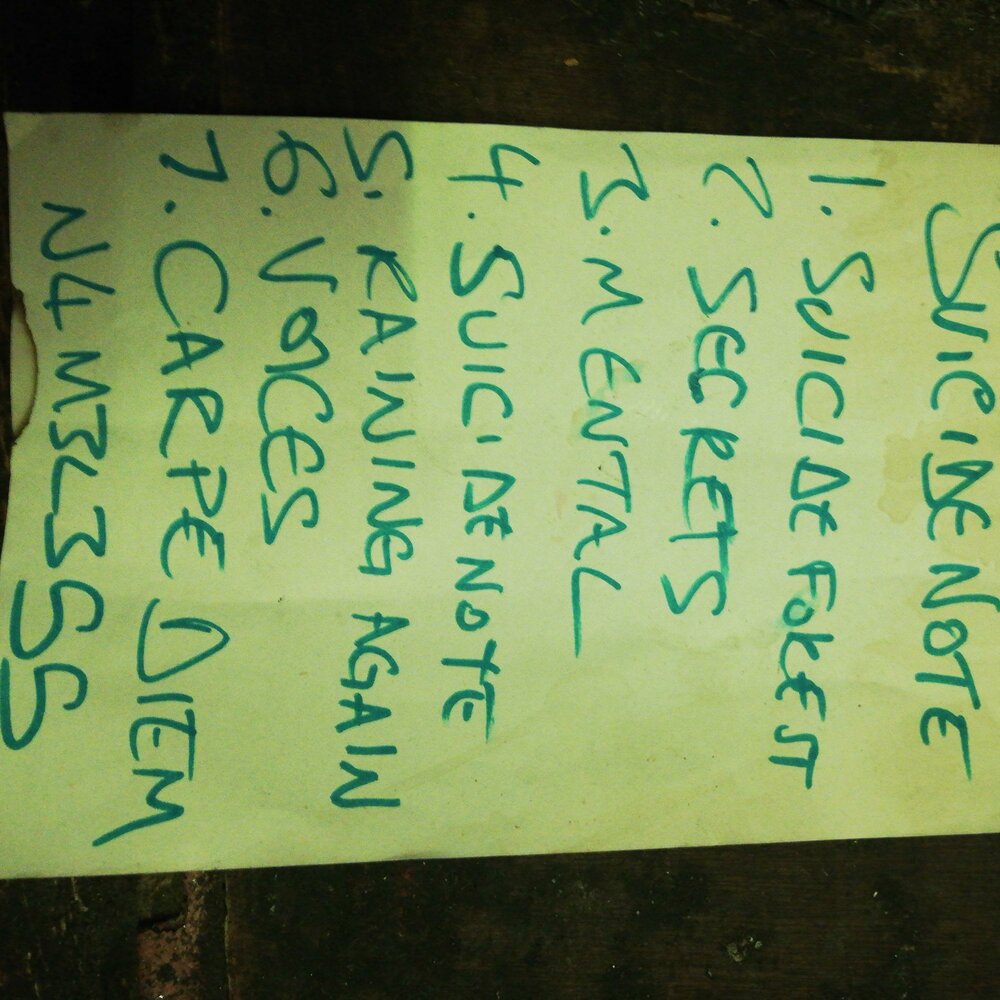 SUICIDE NOTE
1. SUICIDE FOREST
2. SECRETS
3. MENTAL
4. SUICIDE NOTE
5. RAINING AGAIN
6. VOICES
7. CARPE DIEM
N4M3L3SS